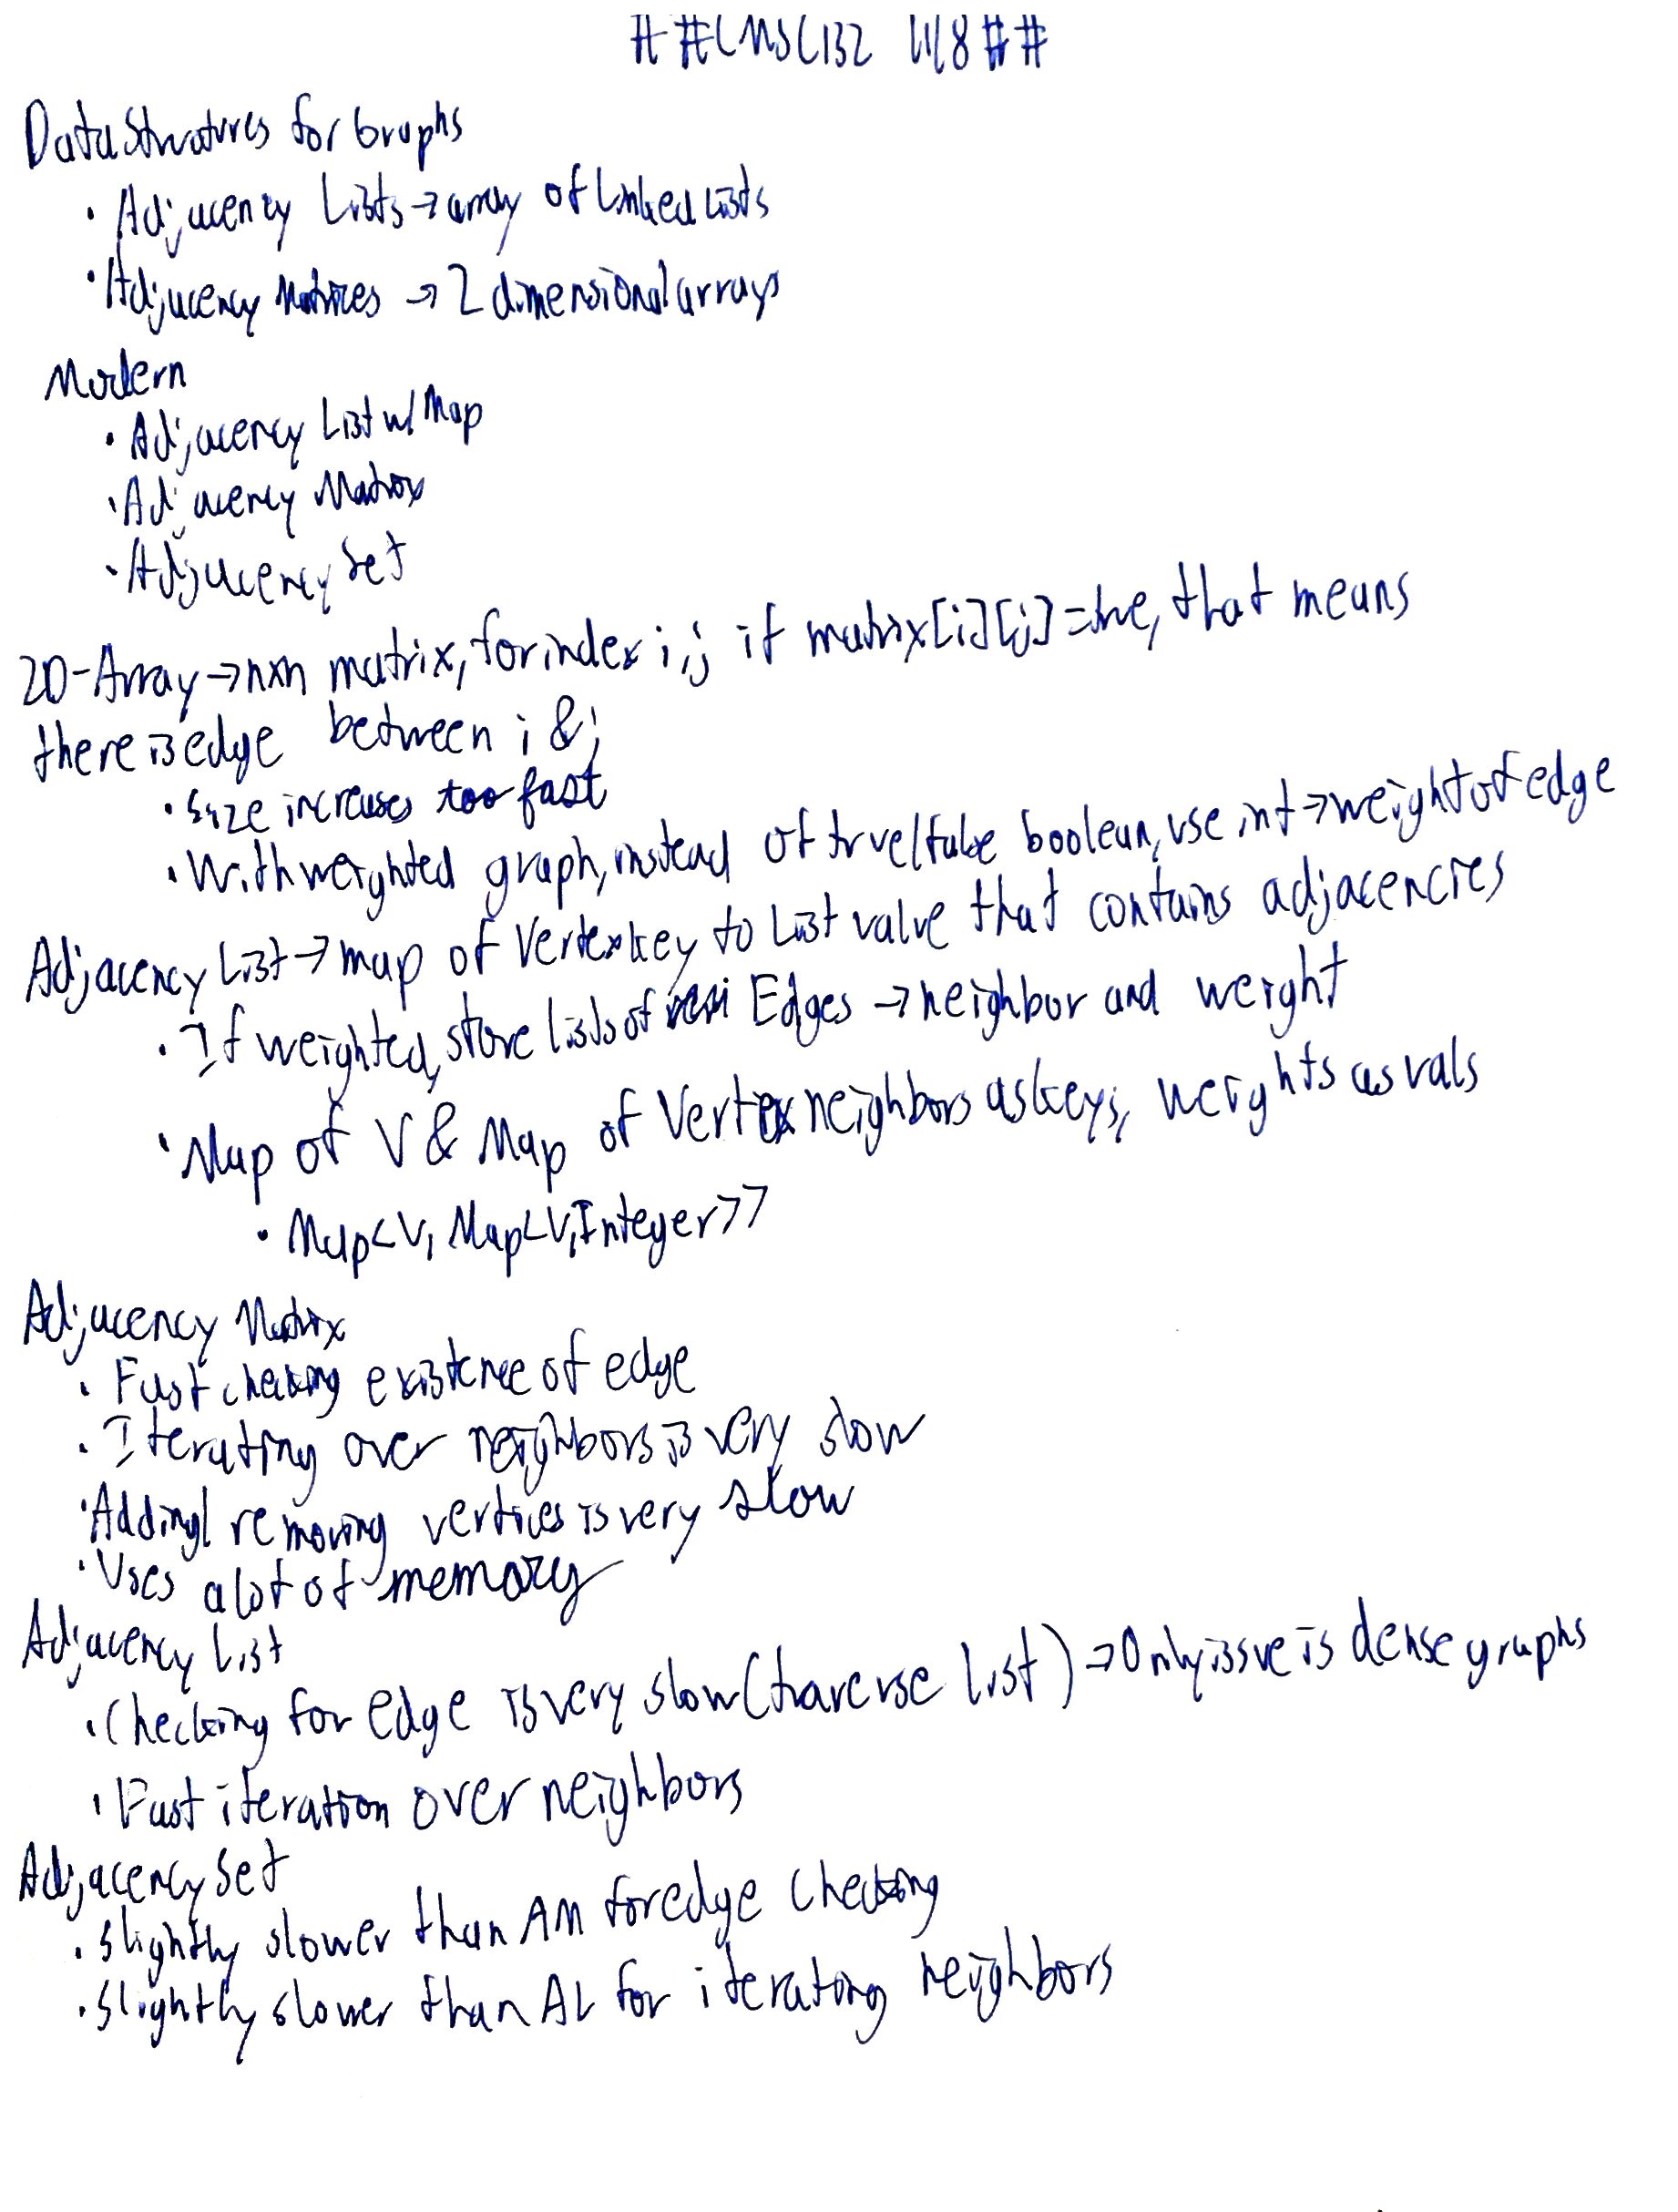 ##CMSC132 4/8##
Data Structures for Graphs
· Adjacency Lists → array of Linked Lists
· Adjacency Matrices → 2 dimensional arrays
Modern
· Adjacency List w/ Map
· Adjacency Matrix
· Adjacency Set
2D-Array → nxn matrix, for index i,j if matrix[i][j]=true, that means
there is edge between i & j
· Size increases too fast
· With weighted graph, instead of true/false boolean, use int → weight of edge
Adjacency List → map of Vertex key to List value that contains adjacencies
· If weighted, store lists of Edges → neighbor and weight
· Map of V & Map of Vertex neighbors as keys, weights as vals
· Map<V, Map<V,Integer>>
Adjacency Matrix
· Fast checking existence of edge
· Iterating over neighbors is very slow
· Adding/removing vertices is very slow
· Uses a lot of memory
Adjacency List
· Checking for edge is very slow (traverse list) → Only issue is dense graphs
· Fast iteration over neighbors
Adjacency Set
· Slightly slower than AM for edge checking
· Slightly slower than AL for iterating neighbors